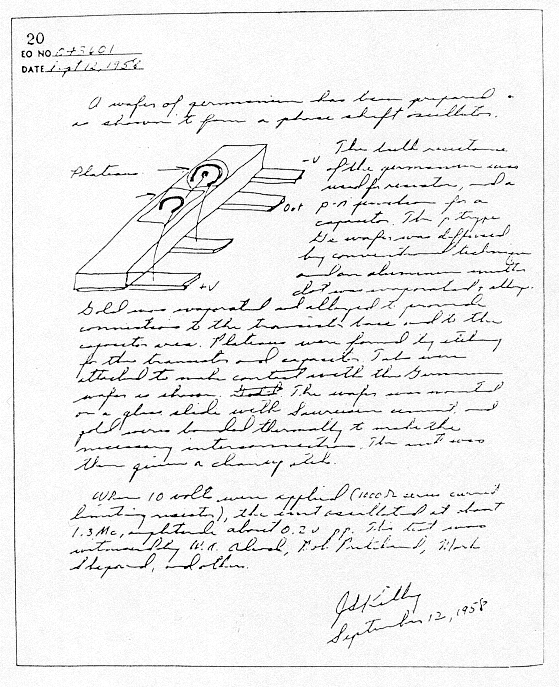 20
EO NO
DATE Sept 12, 1958
A wafer of germanium has been prepared
as shown to form a phase shift oscillator.
Plateaus
-V
Out
+V
The bulk resistance
of the germanium was
used for resistor, and a
p-n junction for a
capacitor. The p type
Ge wafer was diffused
by conventional techniques
and an aluminum emitter
dot was evaporated & alloyed.
Gold was evaporated and alloyed to provide
connections to the transistor base and to the
capacitor area. Plateaus were formed by etching
for the transistor and capacitor. Tabs were
attached to make contact with the Germanium
wafer as shown. The wafer was mounted
on a glass slide with cement, and
gold wires bonded thermally to make the
necessary interconnections. The unit was
then given a cleanup etch.
When 10 volts were applied (1000 Ω series current
limiting resistor), the unit oscillated at about
1.3 Mc, amplitude about 0.2 v pp. This test was
witnessed by W.A. Adcock, Bob Pritchard, Mark
Shepard, and others.
JSKilby
September 12, 1958